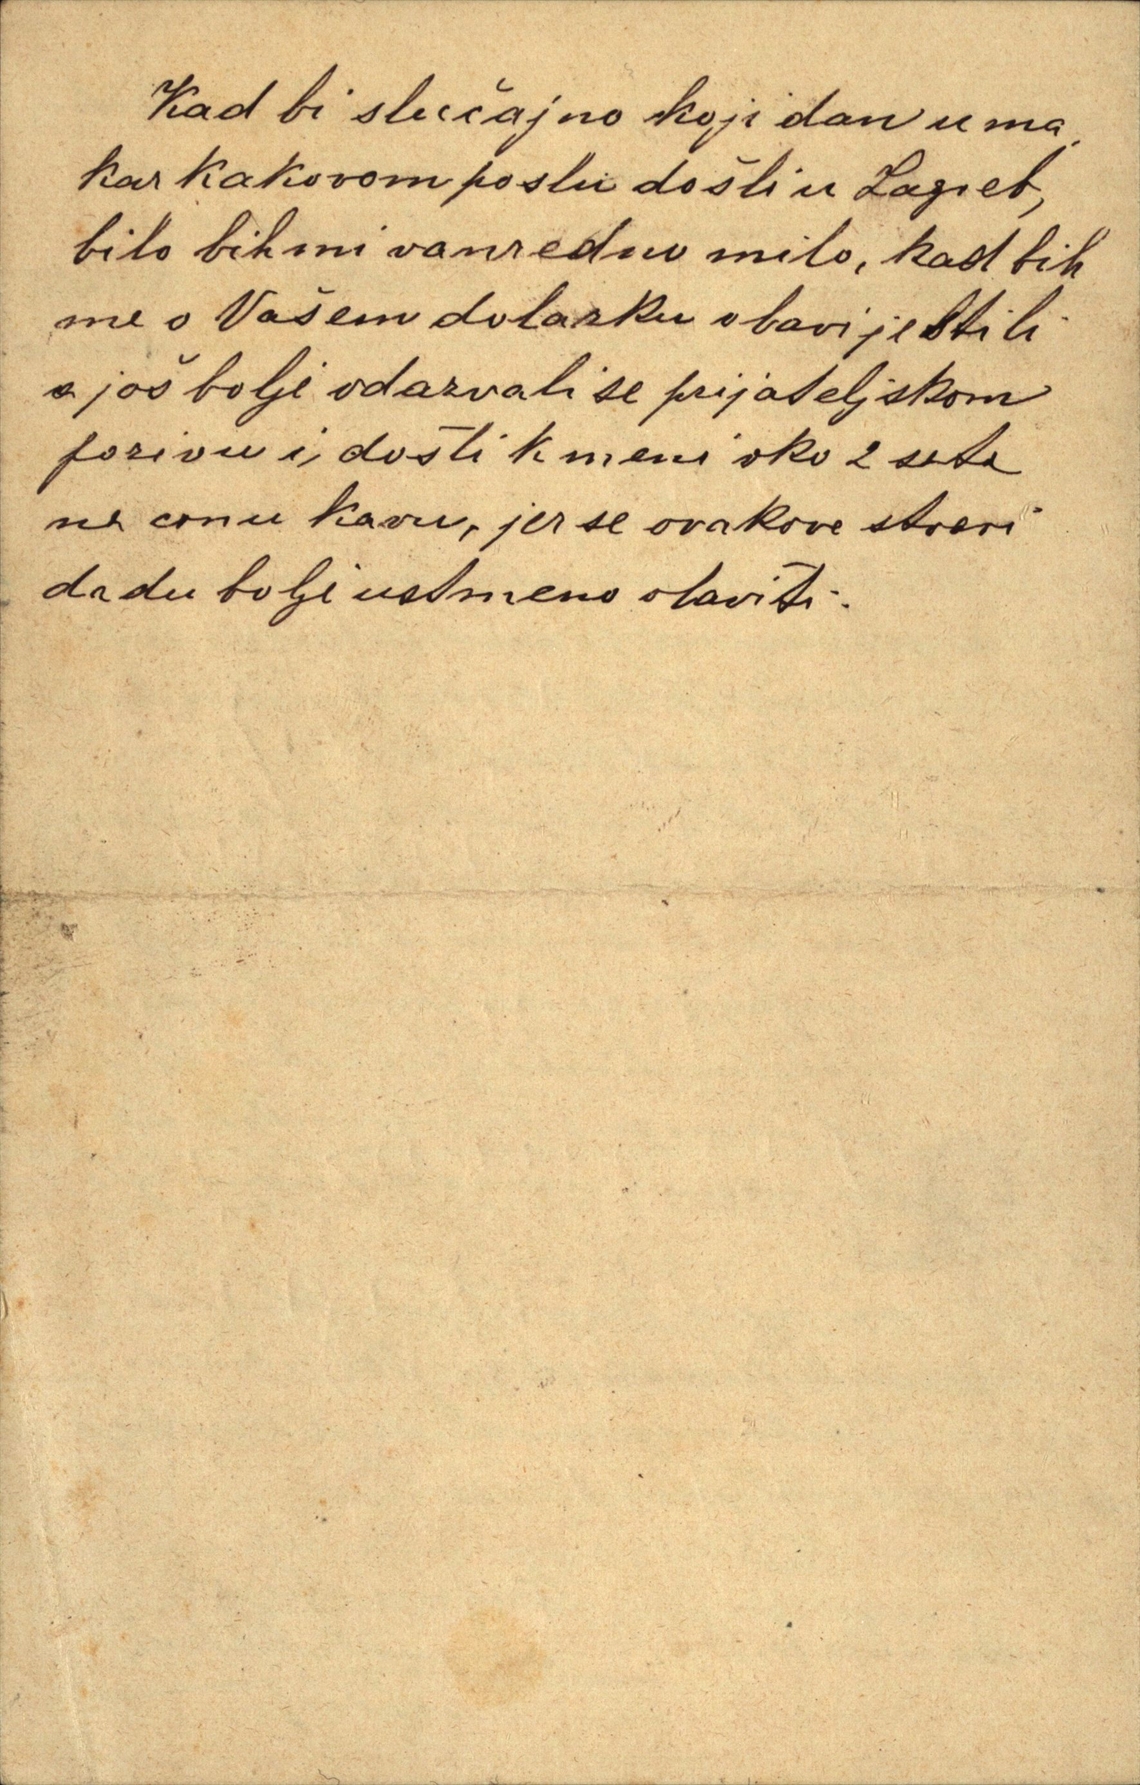 Kad bi slučajno koji dan u ma
kar kakovom poslu došli u Zagreb,
bilo bih mi vanredno milo, kad bih
me o Vašem dolazku obavijestili
a još bolje odazvali se prijateljskom
pozivu i, došli k meni oko 2 sata
na crnu kavu, jer se ovakove stvari
dadu bolje ustmeno obaviti.